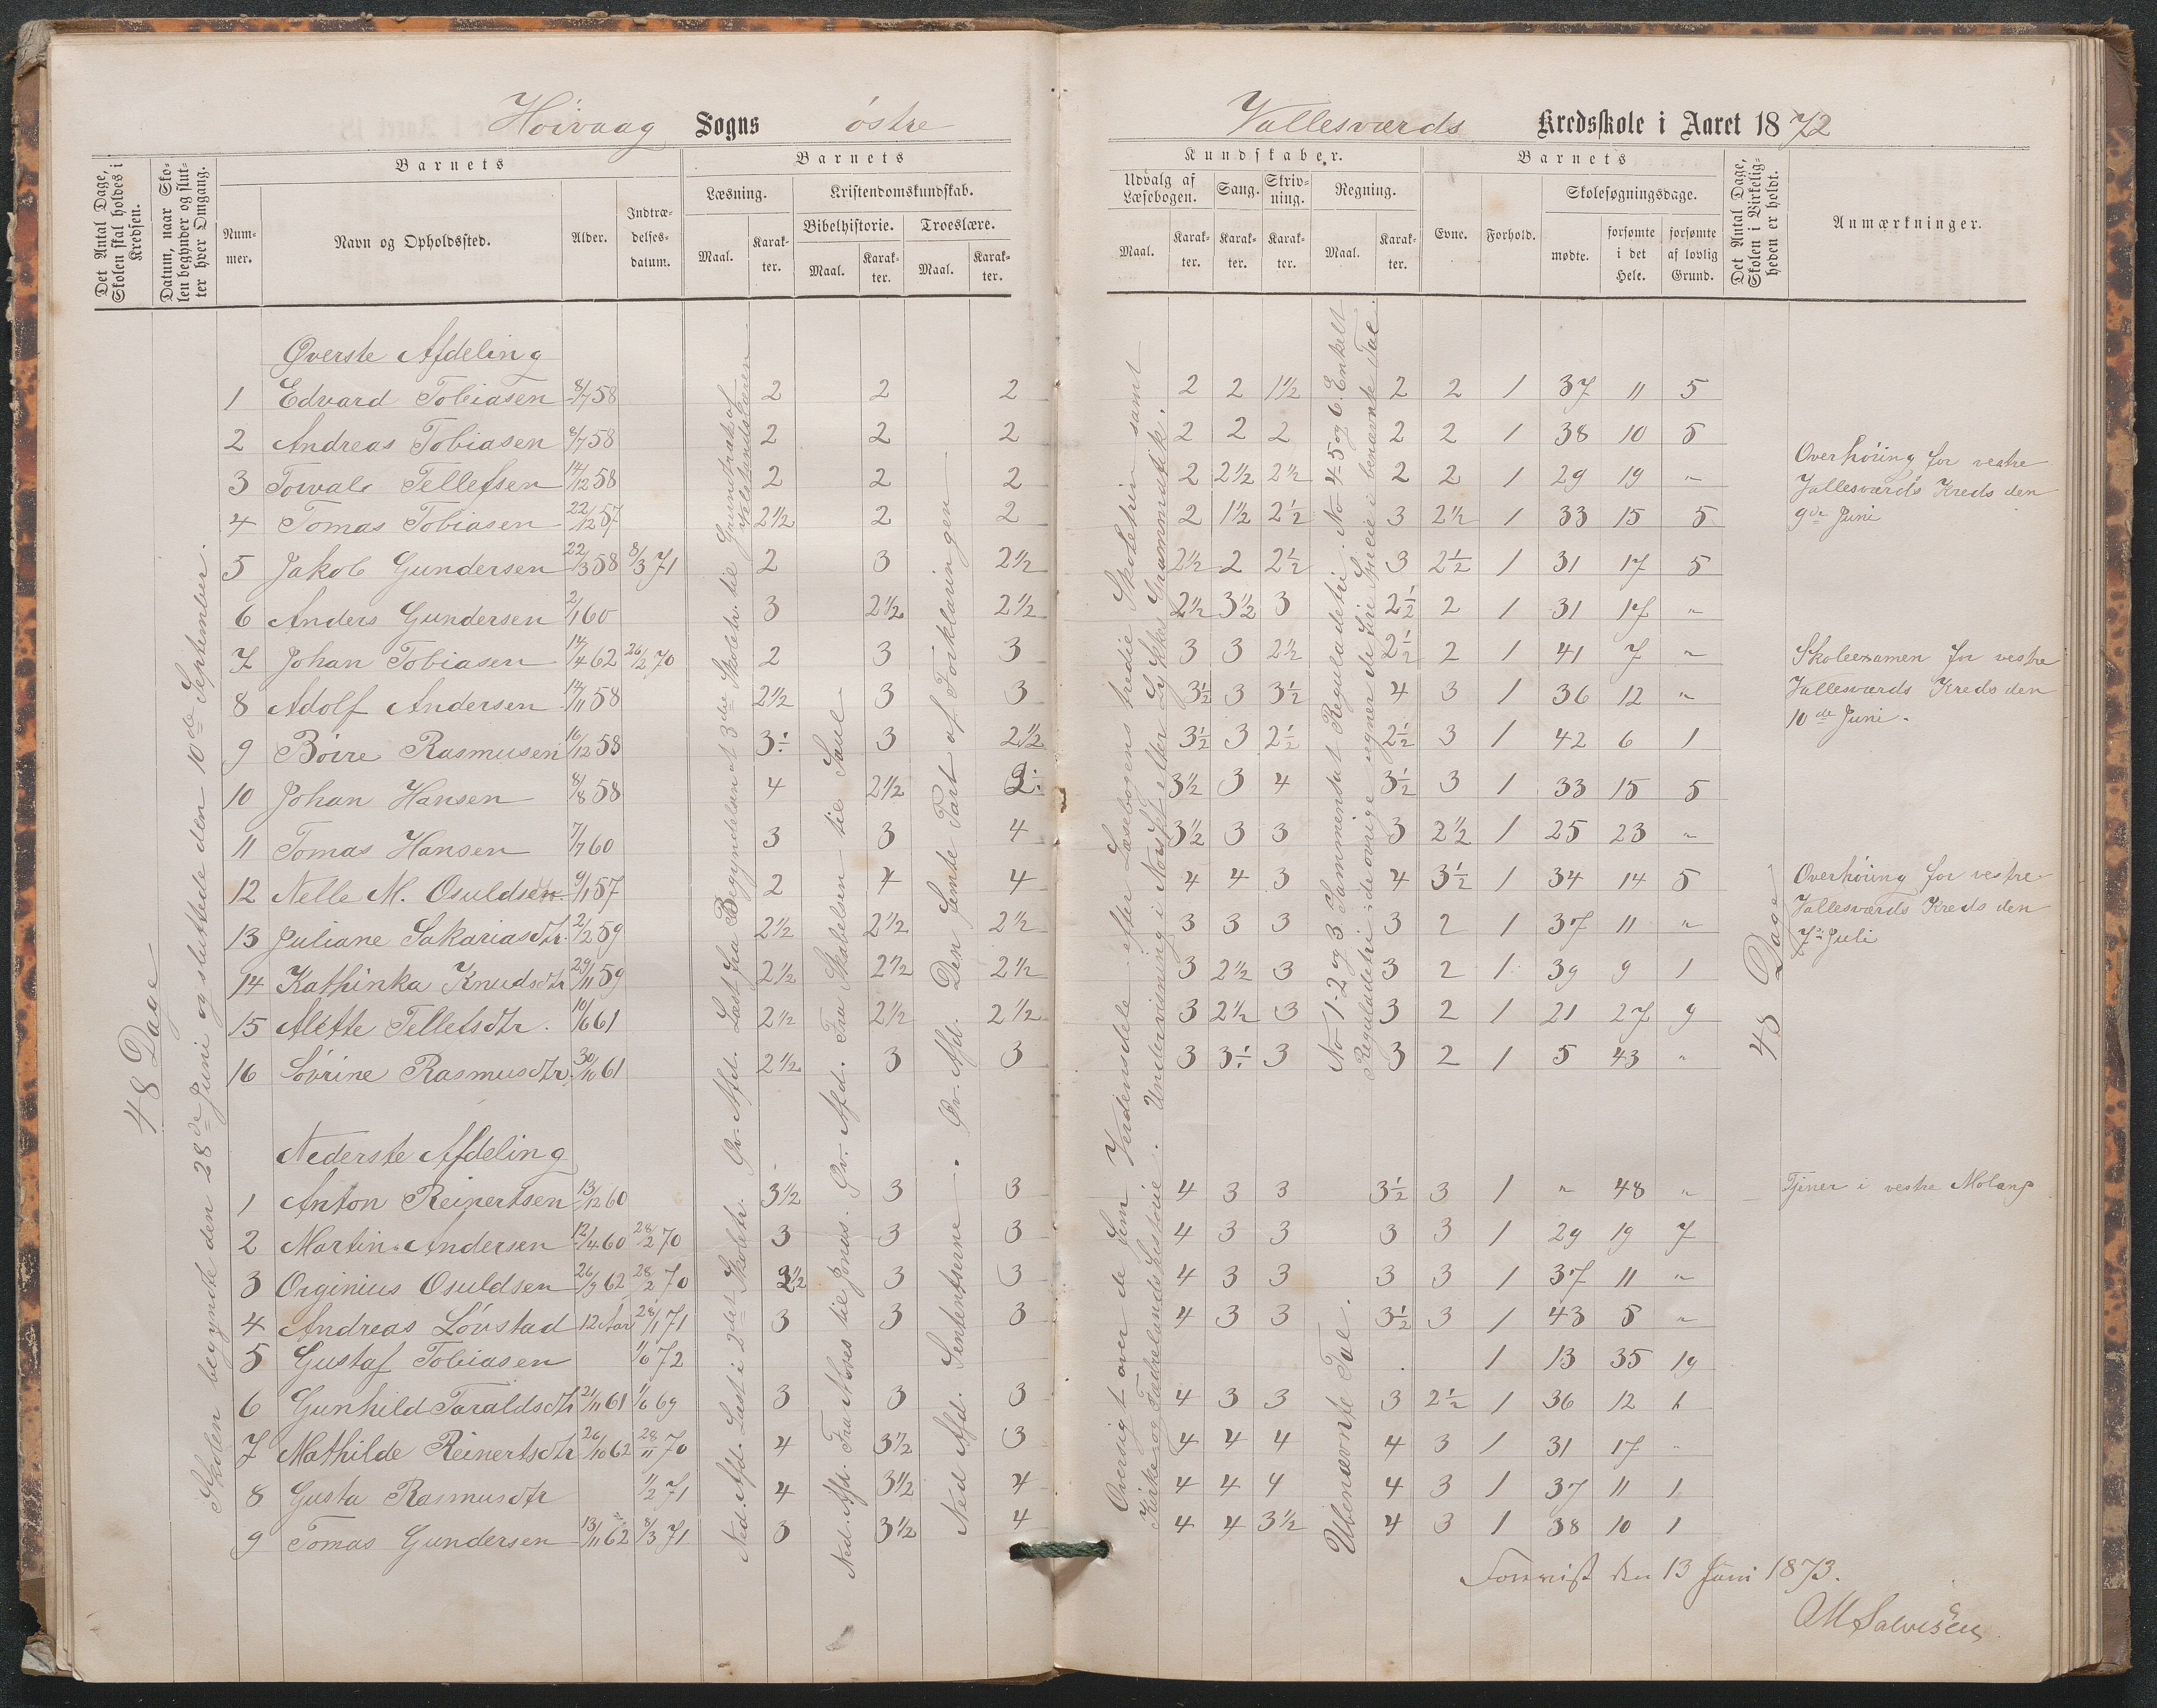 Höivaag Sogns östre
Det Antal Dage, Skolen skal holdes i Kredsen.
Datum, naar Skolen begynder og slutter hver Omgang.
Barnets
Nummer.
Navn og Opholdssted.
Alder.
Indtrædelsesdatum.
Barnets
Læsning.
Maal.
Karakter.
Kristendomskundskab.
Bibelhistorie.
Maal.
Karakter.
Troeslære.
Maal.
Karakter.
48 Dage
Skolen begyndte den 28de Juni og sluttede den 10de September.
Øverste Afdeling
1 Edvard Tobiasen 8/7 58 2 2 2
2 Andreas Tobiasen 8/7 58 2 2 2
3 Torvald Tellefsen 14/12 58 2 2 2
4 Tomas Tobiasen 22/12 57 2½ 2 2
5 Jakob Gundersen 22/3 58 8/3 71 2 3 2½
6 Anders Gundersen 2/1 60 3 2½ 2½
7 Johan Tobiasen 14/4 62 26/2 70 2 3 3
8 Adolf Andersen 14/11 58 2½ 3 3
9 Böire Rasmusen 16/12 58 3½ 3 2½
10 Johan Hansen 8/8 58 4 2½
11 Tomas Hansen 7/7 60 3 3 4
12 Nelle M. Osuldsen 9/11 57 2 4 4
13 Juliane Sakariasdtr. 21/2 59 2½ 2½ 2½
14 Kathinka Knudsdtr 29/11 59 2½ 2½ 2½
15 Alette Tellefsdtr. 10/6 61 2½ 2½ 2½
16 Sövrine Rasmusdtr. 30/10 61 2½ 3 3
Nederste Afdeling
1 Anton Reinertsen 13/12 60 3½ 3 3
2 Martin Andersen 12/4 60 28/2 70 3 3 3
3 Orginius Osuldsen 26/9 62 28/2 70 3½ 3 3
4 Andreas Lövstad 12 Aar 28/1 71 3 3 3
5 Gustaf Tobiasen 1/6 72
6 Gunhild Taraldsdtr 21/11 61 1/6 69 3 3 3
7 Mathilde Reinertsdtr 26/10 62 28/11 70 4 3½ 3
8 Gusta Rasmusdtr 1/2 71 4 3½ 4
9 Tomas Gundersen 13/11 62 8/3 71 3 3½ 4
Ned. Afd. Læst i 2det Skoletr. Øv. Afd. Læst fra Begyndelsen at 3die Skoletr. til Grundtræk af
Ned. Afd. Fra Moses til Jonas. Øv. Afd. Fra Skabelsen til Saul
Ned Afd. Sententserne. Øv. Afd. Den femte Part af Forklaringen
Vallesværds Kredsskole i Aaret 1872
Kundskaber.
Udvalg af Læsebogen.
Maal.
Karakter.
Sang.
Karakter.
Skrivning.
Karakter.
Regning.
Maal.
Karakter.
Barnets
Evne.
Forhold.
Skolesøgningsdage.
mødte.
forsømte i det Hele.
forsømte af lovlig Grund.
Det Antal Dage, Skolen i Virkeligheden er holdt.
Anmærkninger.
2 2 1½ 2 2 1 37 11 5
2 2 2 2 2 1 38 10 5
2 2½ 2½ 2 2 1 29 19 "
2 1½ 2½ 3 2½ 1 33 15 5
2½ 2 2½ 3 2½ 1 31 17 5
2½ 3½ 3 2½ 2 1 31 17 "
3 3 2½ 2½ 2 1 41 7 "
3½ 3 3½ 4 3 1 36 12 "
3½ 3 2½ 2½ 3 1 42 6 1
3½ 3 4 3½ 3 1 33 15 5
3½ 3 3 3 2½ 1 25 23 "
4 4 3 4 3½ 1 34 14 5
3 3 3 3 2 1 37 11 "
3 2½ 3 3 2 1 39 9 1
3 2½ 3 3 2 1 21 27 9
3 3½ 3 3 2 1 5 43 "
4 3 3 3½ 3 1 " 48 "
4 3 3 3 3 1 29 19 7
4 3 3 3 3 1 37 11 "
4 3 3 3½ 3 1 43 5 "
1 13 35 19
4 3 3 3 2½ 1 36 12 1
4 4 4 4 3 1 31 17 "
4 4 4 4 3 1 37 11 1
4 4 3½ 4 3 1 38 10 1
Oversigt over de fem Verdensdele efter Læsebogens tredie Skoletrin samt
Kirke og Fædrelands Historie. Undervisning i Norsk efter Lökkes Grammatik.
No 1-2 og 3 Sammensat Reguladetri. No 4-5 og 6 Enkelt
Reguladetri de övrige regner de fire Specie i benævnte Tal
Ubenævnte Tal.
48 Dage
Overhöring for vestre
Vallesværds Kreds den
9de Juni
Skoleexamen for vestre
Vallesværds Kreds den
10de Juni.
Overhöring for vestre
Vallesværds Kreds den
7de Juli
Tjener i vestre Molang
Forevist den 13 Juni 1873.